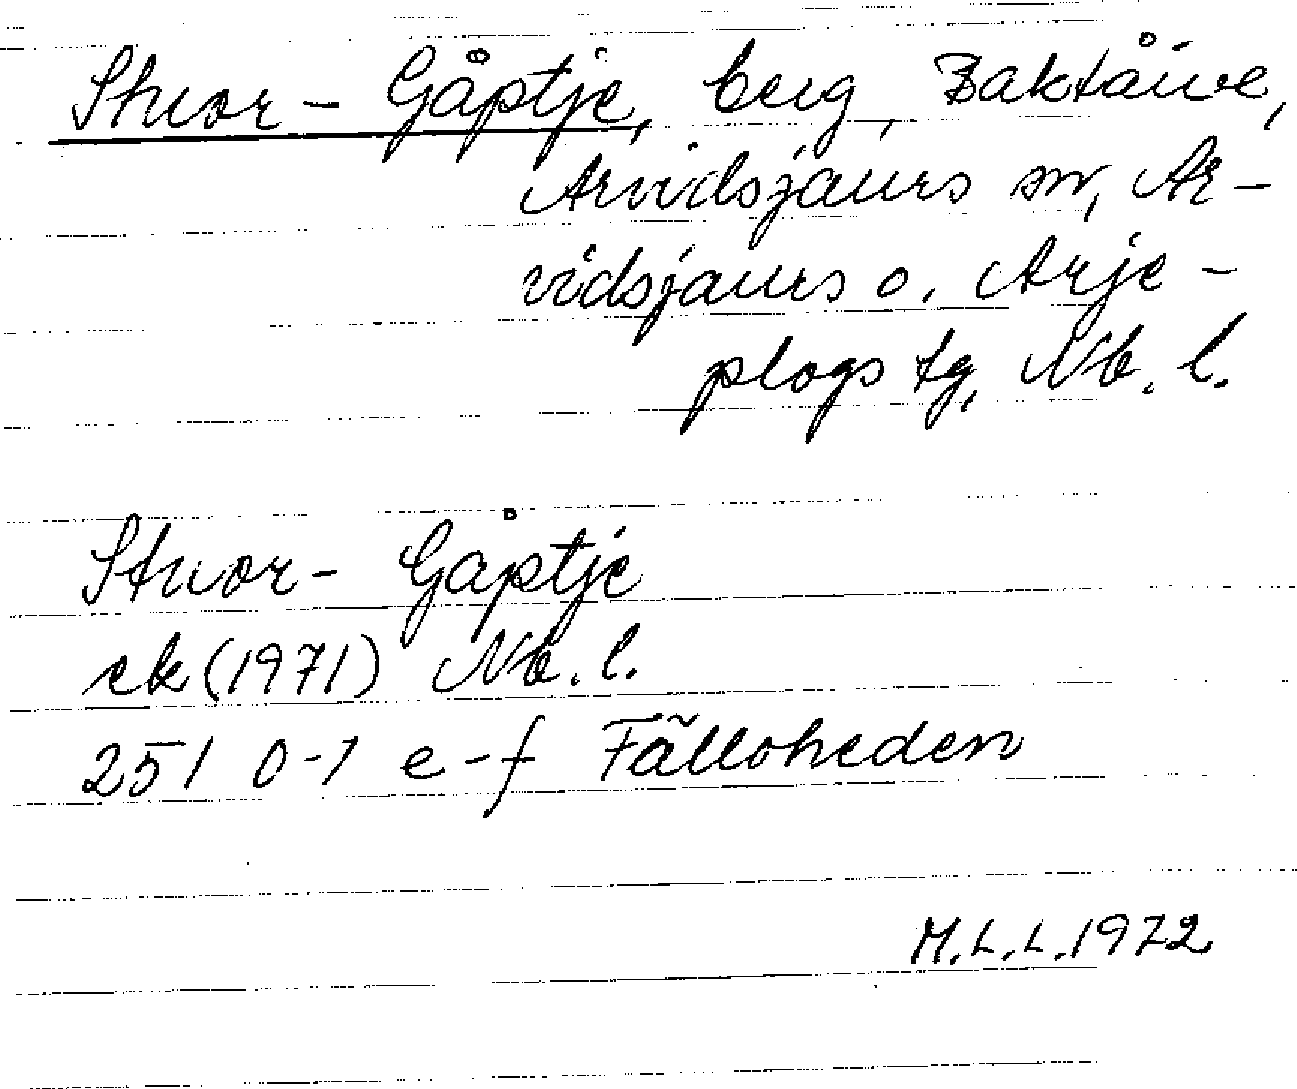 Stuor-Gåptje, berg, Baktåive,
Arvidsjaurs sn, Ar-
vidsjaurs o. Arje-
plogs tg, Nb. l.
Stuor-Gåptje
ek (1971) Nb. l.
251 0-1 e-f Fälloheden
M.L.L. 1972